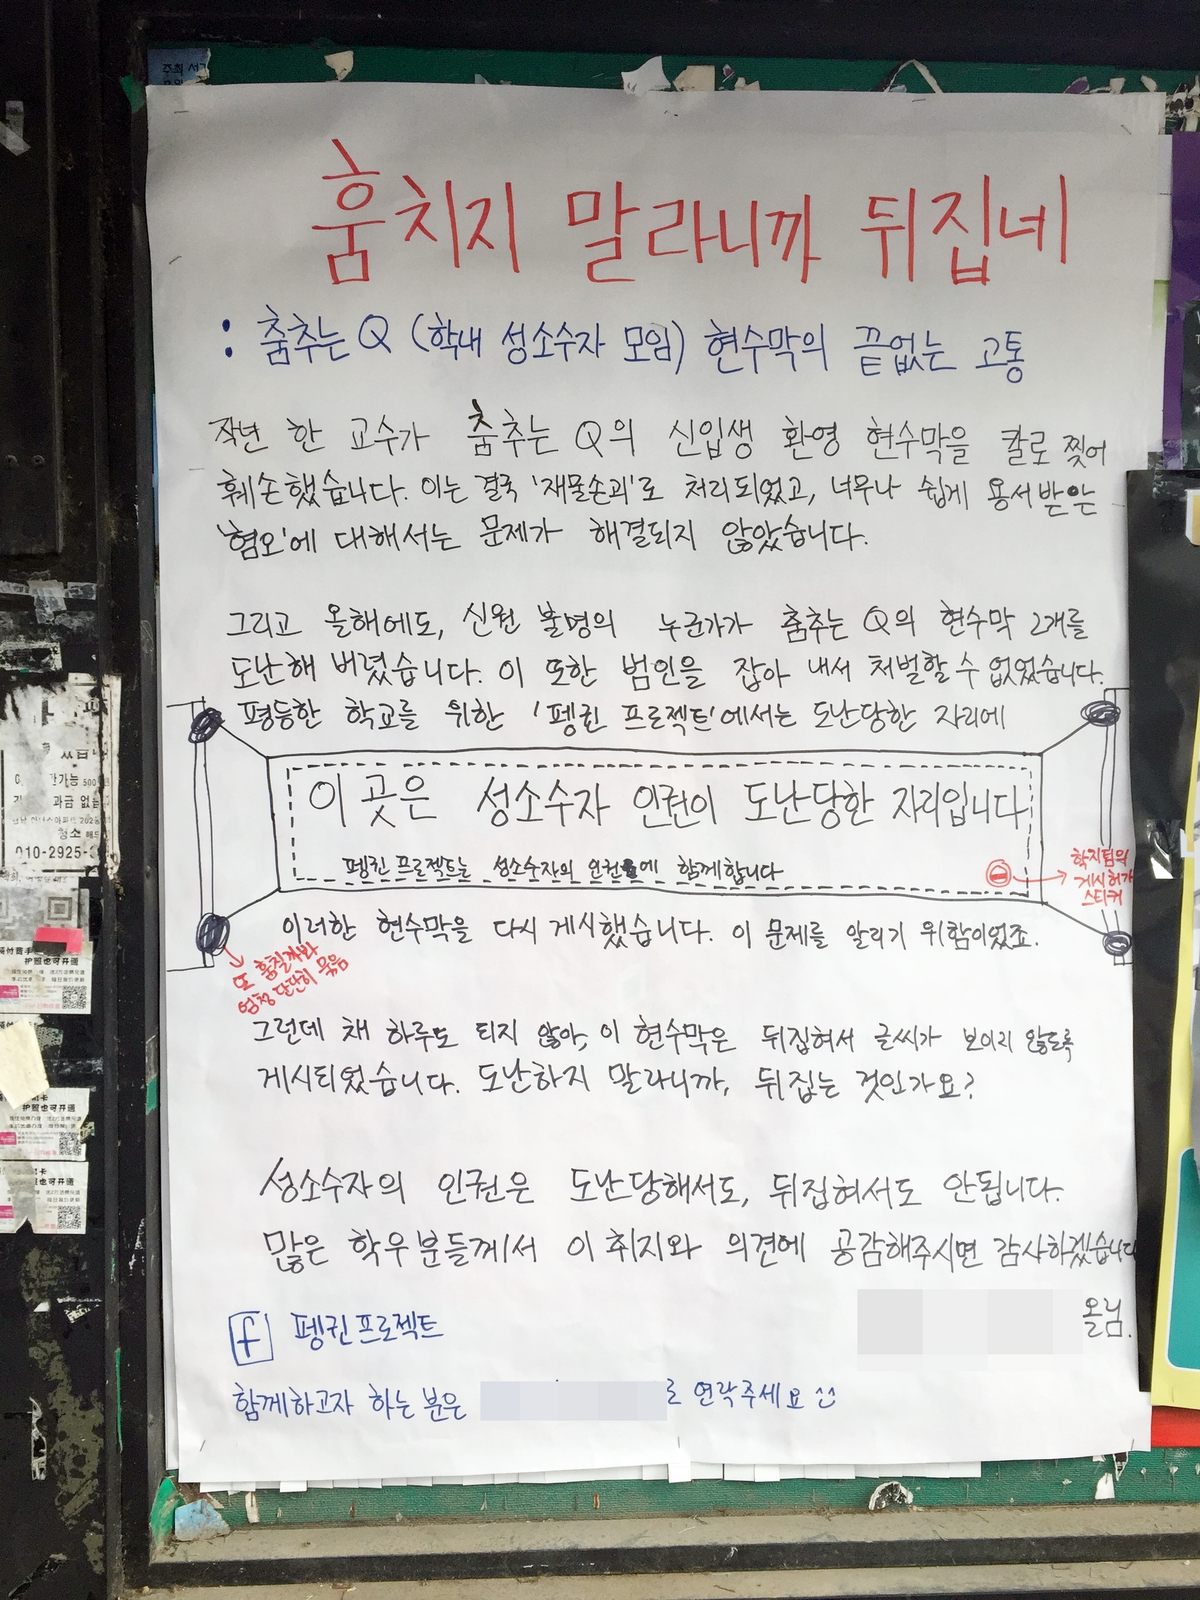 훔치지 말라니까 뒤집네
: 춤추는 Q (학내 성소수자 모임) 현수막의 끝없는 고통
작년 한 교수가 춤추는 Q의 신입생 환영 현수막을 칼로 찢어
훼손했습니다. 이는 결국 '재물손괴'로 처리되었고, 너무나 쉽게 용서받은
'혐오'에 대해서는 문제가 해결되지 않았습니다.
그리고 올해에도, 신원 불명의 누군가가 춤추는 Q의 현수막 2개를
도난해 버렸습니다. 이 또한 범인을 잡아 내서 처벌할 수 없었습니다.
평등한 학교를 위한 '펭귄 프로젝트'에서는 도난당한 자리에
이 곳은 성소수자 인권이 도난당한 자리입니다
펭귄 프로젝트는 성소수자의 인권에 함께합니다
학지팀의
게시허가
스티커
이러한 현수막을 다시 게시했습니다. 이 문제를 알리기 위함이었죠.
또 훔칠까봐
엄청 단단히 묶음
그런데 채 하루도 되지 않아, 이 현수막은 뒤집혀서 글씨가 보이지 않도록
게시되었습니다. 도난하지 말라니까, 뒤집는 것인가요?
성소수자의 인권은 도난당해서도, 뒤집혀서도 안됩니다.
많은 학우분들께서 이 취지와 의견에 공감해주시면 감사하겠습니다
올림.
f 펭귄프로젝트
함께하고자 하는 분은
로 연락주세요
주최
가능 500
과금 없
청소
010-2925-3
护照也可开通
护照也可开通
护照也可开通